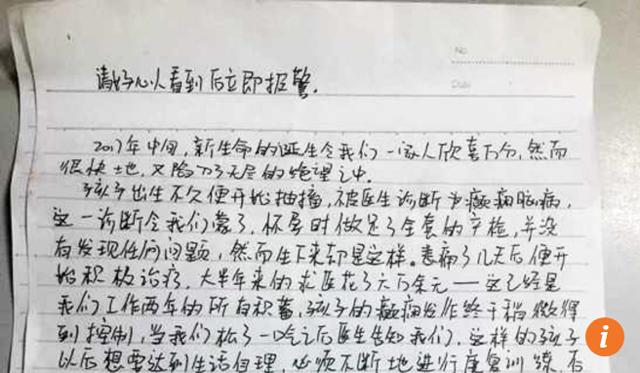 No.
Date
请好心人看到后立即报警.
2017年中旬,新生命的诞生令我们一家人欣喜万分,然而
很快地,又陷入了无尽的绝望之中.
孩子出生不久便开始抽搐,被医生诊断为癫痫脑病,
这一诊断令我们蒙了,怀孕时做足了全套的产检,并没
有发现任何问题,然而生下来却是这样.悲痛了几天后便开
始积极治疗,大半年来的求医花了六万余元——这已经是
我们工作两年的所有积蓄,孩子的癫痫发作终于稍微得
到控制,当我们松了一口气之后医生告知我们,这样的孩子
以后想要达到生活自理,必须不断地进行康复训练,否